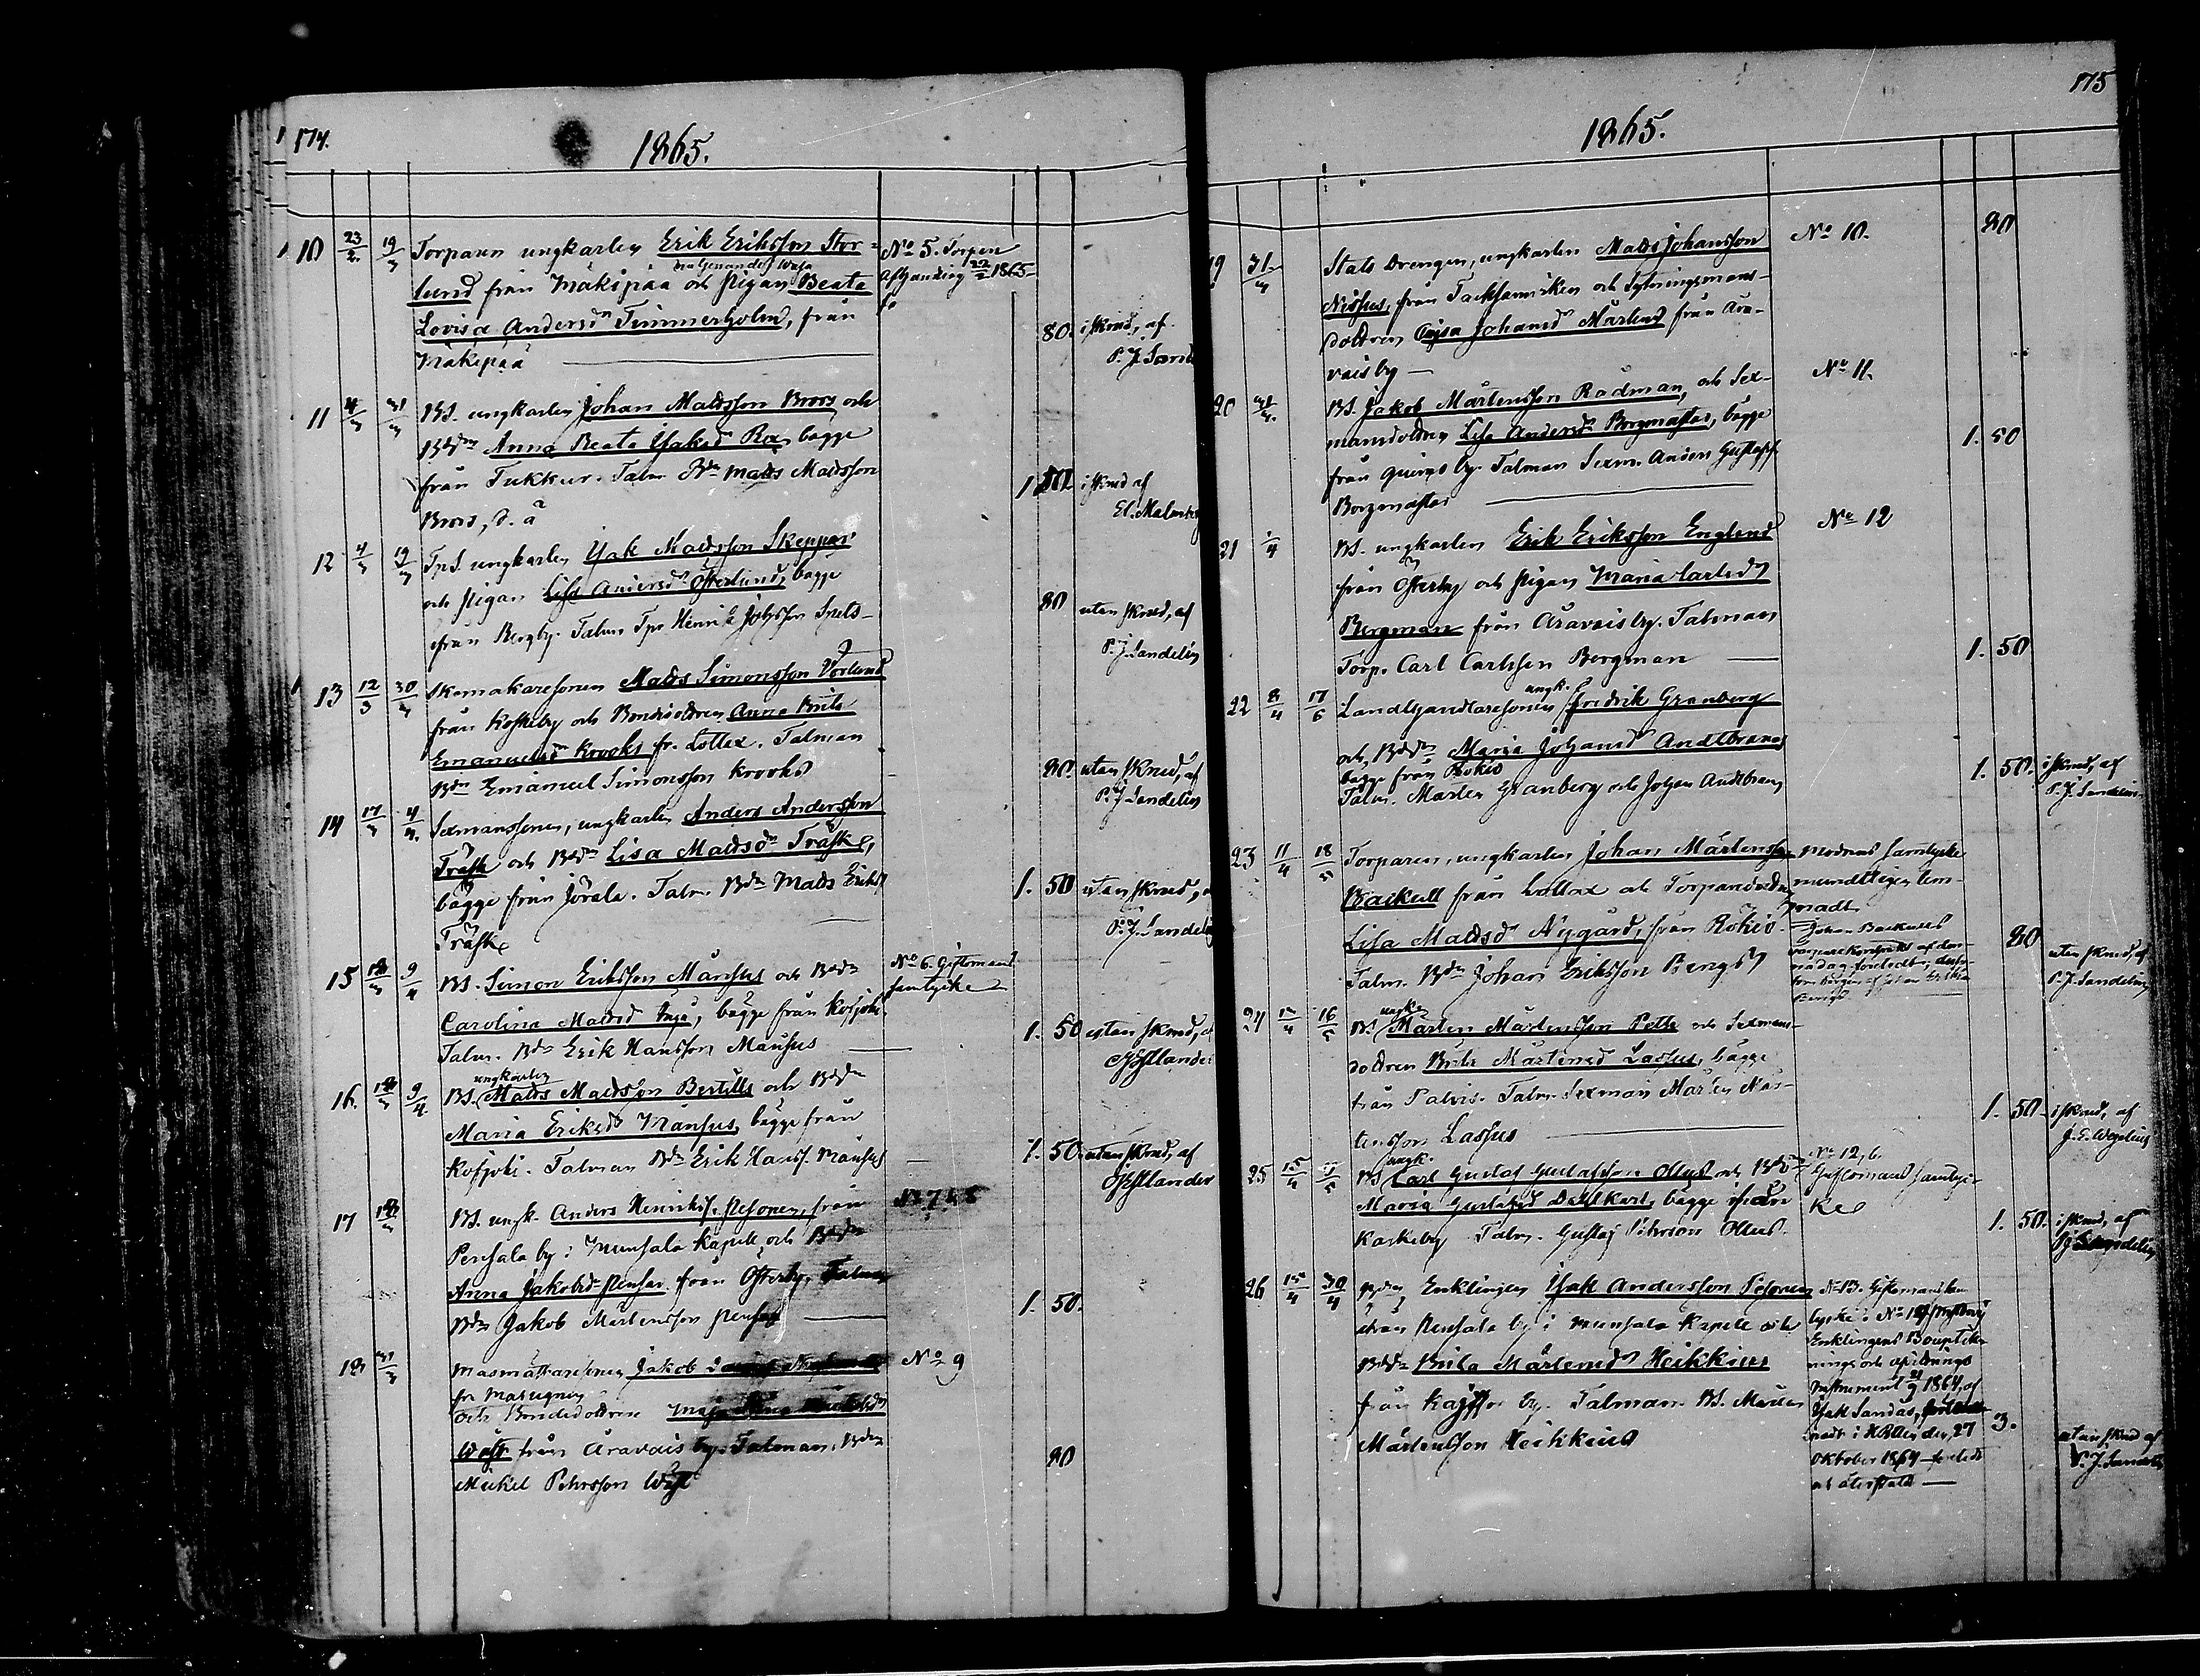 174.
1865.
10 23/2 19/3 Torparen ungkarlen Erik Eriksson Stor=
lund från Mäkipää och Pigan Beata
Lovisa Andersdr Timmerholm, från
Mäkipää
No 5. Torpen
Afhandling 22/2 1865
80. i skrud, af
P. J. Sand
11 4/3 31/3 BS. ungkarlen Johan Mattsson Brors och
Bdr Anna Beata Isaksdr Ra bägge
från Tukkur. Talm. Bdn Matts Mattsson
Brors, d. ä
1 50 i skrud af
El. Malmberg
12 4/3 19/3 TpS. ungkarlen Isak Mattsson Skeppar
och Pigan Lisa Andersdr Österlund, bägge
från Bergby. Talm Tpr Henrik Johsson Spets-
80 utan skrud, af
P. J. Sandelin
13 12/3 30/3 Skomakaresonen Matts Simonsson Vörlund
från Koskeby och Bondedottren Anna Brita
Emanuelsdr Krooks fr. Lottax. Talman
Bdn Emanuel Simonsson Krooks
80. utan skrud, af
P. J. Sandelin
14 17/3 4/4. Sexmanssonen, ungkarlen Anders Andersson
Träsk och Bdr Lisa Mattsdr Träsk,
bägge från Jörala. Talm. Bdn Matts Eriks
Träsk
1. 50 utan skrud,
P. J. Sandelin
15 18/3 9/4 BS. Simon Eriksson Mänsus och Bdr
Carolina Mattsd Inga, bägge från Kosjoki.
Talm. Bdn Erik Hansson Mänsus
No 6. Giftomans
samtycke
1. 50 utan skrud,
Estlander
ungkarlen
16. 18/3 9/4 BS. Matts Mattsson Bertills och Bdr
Maria Eriksdr Mänsus, bägge från
Kosjoki. Talman Bdn Erik Hanss. Mänsus
1. 50. utan skrud, af
Estlander
17 BS. ungk. Anders Henrikss. Pesonen, från
Pensala by i Munsala Kapell och Bdr
Anna Jakobsdr Pensar från Österby, Talman
Bdn Jakob Mårtensson Pensar
No 7 & 8
1. 50.
18 31/3 Masmästaresonen Jakob
fr Masugnen
och Bondedottren Maja
Wäst från Oravais by. Talman. Bdn
Mickel Pehrsson Wäst
No 9
80
175
1865.
19 31/3 Stats Drengen, ungkarlen Matts Johansson
Nissus, från Tacksamviken och Sytningsmans-
dottren Cajsa Johansd Mårtens från Ora-
vais by
No 10.
80
20 BS. Jakob Mårtensson Rådman, och Sex-
mansdottren Lisa Andersdr Borgmästar, bägge
från Quimo by. Talman Sexm. Anders Gustafs.
Borgmästar
No 11.
1. 50
21 1/4 BS. ungkarlen Erik Eriksson Englund
från Österby och Pigan Maria Carlsdr
Bergman från Oravais by. Talman
Torp. Carl Carlsson Bergman
No 12
1. 50
ungk.
22 8/4 17/6 Landthandlaresonen Fredrik Granberg
och Bdr Maria Johansd Andtbrand
bägge från Rökiö
Talm. Mårten Granberg och Johan Andtbrand
1. 50. i skrud, af
P. J. Sandelin
23 11/4 18/5 Torparen, ungkarlen Johan Mårtensson
Backull från Lottax och Torparedottren
Lisa Mattsd Nygård, från Rökiö.
Talm. Bdn Johan Eriksson Bengs
Modrens samtycke
mundtligen lem-
nadt
80 utan skrud, af
P. J. Sandelin
24 12/4 16/5 BS. Mårten Mårtensson Pelle och Sexmans-
dottren Brita Mårtensd Lassus, bägge
från Palvis. Talm. Sexman Mårten Mår-
tensson Lassus
1. 50. i skrud, af
J. E. Wegelius
ungk.
25 15/4 BS Carl Gustaf Gustafsson Ollus och Bdr
Maria Gustafsd Dahlkarl, bägge från
Kaskeby Talm. Gustaf Pehrson Ollus.
No 12,6.
Giftomans samtyc-
ke
1. 50. i skrud, af
P J Sandelin
26 15/4 30/4 Bdn, Enklingen Isak Andersson Pesonen
från Pensala by i Munsala Kapell och
Bdr Brita Mårtensd Heikkius
från Kaitsor by. Talman BS. Mårten
Mårtensson Heikkius
No 13. Giftomans sam
tycke.
Enklingens Bouptek-
nings och afvittrings
instrument 21/9 1864, af
Isak Sandås,
nadt i HRtten den 27
Oktober 1864 företedt
och återstäld
3. utan skrud af
P. J. Sandelin